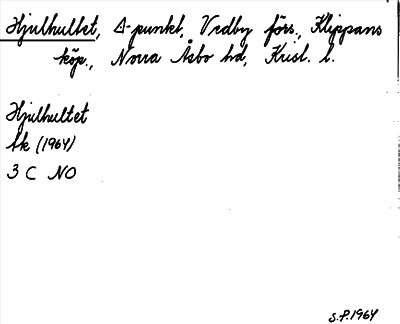 Hjulhultet, Δ-punkt, Vedby förs., Klippans
köp., Norra Åsbo hd, Krist. l.
Hjulhultet
Ak (1964)
3 C NO
S.P. 1964